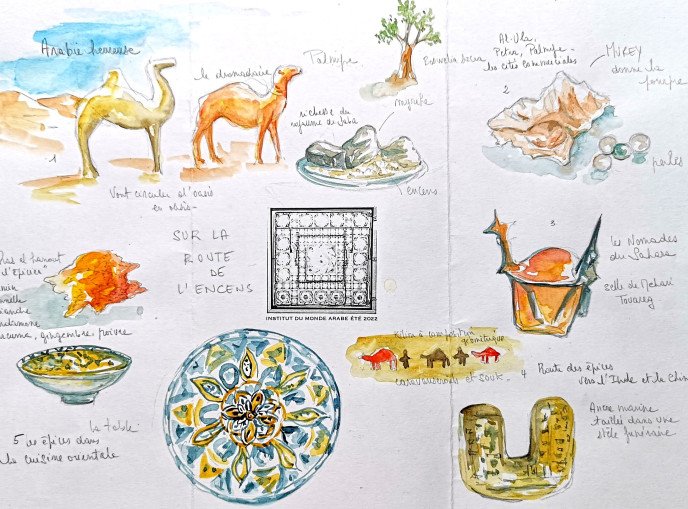 Arabie heureuse
le dromadaire
Palmyre
Boswellia Sacra
Al-Ula,
Petra, Palmyre -
les cités commerciales
MUREX
donne la
pourpre
2
richesse du
royaume de Saba
myrrhe
encens
perles
1
Vont circuler d'oasis
en oasis -
SUR LA
ROUTE
DE
L'ENCENS
INSTITUT DU MONDE ARABE ÉTÉ 2022
3
les Nomades
du Sahara
selle de Mehari
Touareg.
Ras el hanout
d'épices"
cardamome
curcuma, gingembre, poivre
Kilim à composition
géométrique
caravansérail et souk -
4 Route des épices
vers l'Inde et la Chine
la table
5 les épices dans
la cuisine orientale
Ancre marine
taillée dans une
stèle funéraire